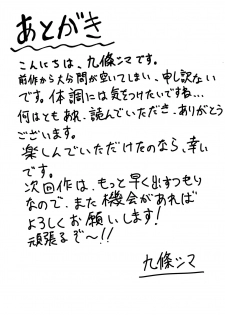 あとがき
こんにちは、九條シマです。
前作から大分間が空いてしまい、申し訳ない
です。体調には気をつけたいですね…
何はともあれ、読んでいただき、ありがとう
ございます。
楽しんでいただけたのなら、幸い
です。
次回作は、もっと早く出すつもり
なので、また機会があれば
よろしくお願いします!
頑張るぞ〜!!
九條シマ